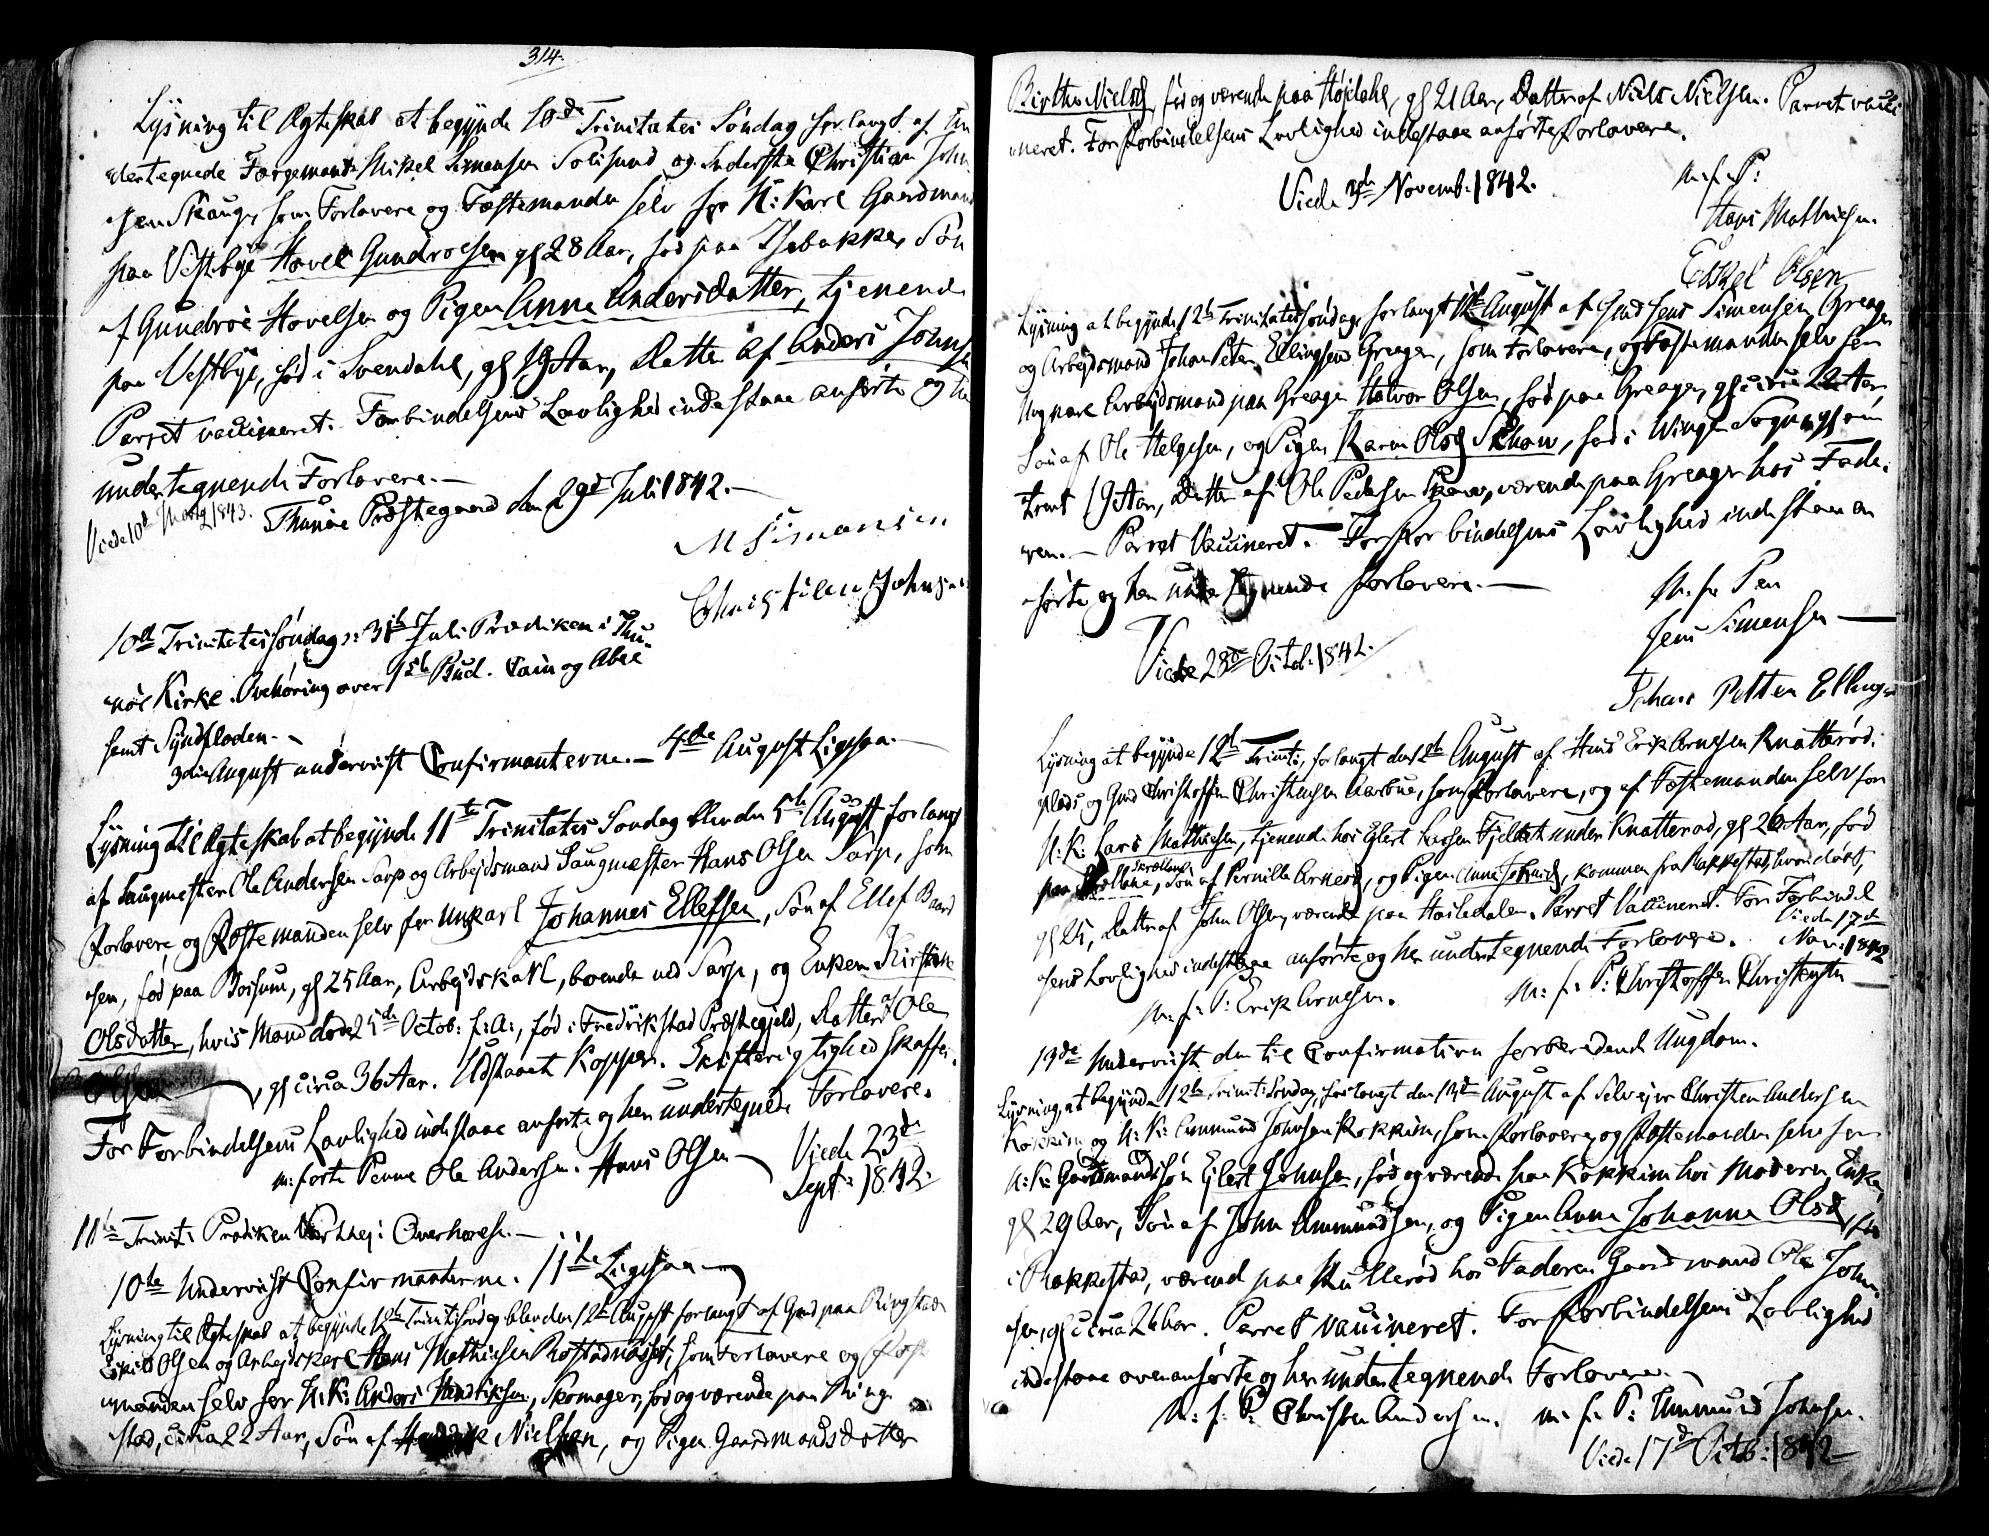 314.
Lysning til Ægteskab at begynde 10de Trinitatis Søndag forlangt af Un
dertegnede Færgemand Mikel Simensen Solisund og Inderste Christian John
sen Skaug, som Forlovere og Fæstemanden selv for U: Karl Gaardmand
paa Vestbye Hovel Gundroesen gl 28 Aar, fød paa Søn
af Gundroe Hovelsen og Pigen Anne Andersdatter, tjenende
paa Vestbye, fød i Svendahl, gl 19 Aar, Datter af Anders Johns
Parret vaccineret. Forbindelsens Lovlighed indestaae anførte og
undertegnende Forlovere.—
Thunøe Præstegaard den 29de Juli 1842.—
Viede 10de Marty 1843.
M Simonsen
Christian Johnsen
10de Trinitatis søndag 31te Juli Prædiken i Thu
nøe Kirke. Overhøring over 1ste Bud. Cain og Abel
samt Syndfloden.—
3die August underviist Confirmanterne.— 4de August Ligesaa.—
Lysning til Ægteskab at begynde 11te Trinitatis Søndag blev den 5te August forlangt
af Saugmester Ole Andersen Sarp og Arbejdsmand Saugmester Hans Olsen Sarp, som
Forlovere, og Fæstemanden selv for Ungkarl Johannes Ellefsen, Søn af Ellef Baard
sen, fød paa Borsum, gl 25 Aar, Arbejdskarl, boende ved Sarp, og Enken Kirstine
Olsdatter, hvis Mand døde 25de Octob: f: A:, fød i Fredrikstad Præstegjeld, Datter af Ole
Olsen, gl circa 36 Aar. Udstaaet Kopper. Skifterigtighed skaffes.
For Forbindelsens Lovlighed indestaae anførte og her undertegnede Forlovere.
m: førte Penne Ole Andersen. Hans Olsen— Viede 23de
Septr: 1842.
11te Trinit: Prædiken Overhørelse.—
10de Underviist Confirmanterne. 11te Ligesaa—
Lysning til Ægteskab at begynde 12te Trinit: Søndag blev den 12te August forlangt af Gmd paa Ringstad
Olsen og Arbejdskarl Hans Mathiesen Rostadnæsset, som Forlovere og Fæste
manden selv for U: K: Anders Hendriksen, Skomager, fød og værende paa Ring
stad, circa 22 Aar, Søn af Nielsen, og Pigen Gaardmandsdatter
Birthe Nielsd, fød og værende paa Højdahl, gl 21 Aar, Datter af Niels Nielsen. Parret vacci
neret. For Forbindelsens Lovlighed indestaae anførte Forlovere.
Viede 3de Novemb. 1842.
m. f. P:
Hans Mathiesen.
Eskel Olsen
Lysning at begynde 12te Trinitatis søndag, forlangt August af Gmd Jens Simensen Greager
og Arbejdsmand Johan Peter Ellingsen Greager, som Forlovere, og Fæstemanden selv for
Ungkarl Arbejdsmand paa Greager Halvor Olsen, fød paa Greager, gl circa 22 Aar
Søn af Ole Helgesen, og Pigen Karen Olsd Skaw, fød i Winger Sogn, gl om
trent 19 Aar, Datter af Ole Pedersen Skaw, værende paa Greager hos Fade,
ren.— Parret Vaccineret. For Forbindelsens Lovlighed indestaae an
førte og her undertegnende Forlovere.—
m. f. Pen
Jens Simensen—
Viede 28de Octob. 1842.
Johans Petter Ellings
Lysning at begynde 12te Trinit:, forlangt den August af Huus Erik Arnesen Knatterød.
plads, og Gmd Christoffer Christensen Aarbue, som Forlovere, og af Fæstemanden selv for
U: K: Lars Mathiesen, tjenende hos Eilert Larsen Fjeldet under Knatterød, gl 26 Aar, fød
paa Skrællene, Søn af Pernille Arnesd, og Pigen Anne Johnsd, kommen fra Rakkestad, hvor døbt,
gl 25, Datter af John Olsen, værende paa Hasledalen. Parret Vaccineret. For Forbindel
sens Lovlighed indestaae anførte og her undertegnende Forlovere. Viede 17de
Nov: 1842
m. f. P: Erik Arnesen. m: f: P: Christoffer Christensen—
13de Underviist den til Confirmation forberedende Ungdom.
Lysning, at begynde 12te Trinit: Søndag, forlangt den 13de August af Selvejer Christen Andersen
Kokkim og U: K: Ammund Johnsen Kokkim, som Forlovere, og Fæstemanden selv for
U: K: Gaardmandssøn Ejlert Johnsen, fød og værende paa Kokkim hos Moderen, Enke,
gl 29 Aar, Søn af John Ammundsen, og Pigen Anne Johanna Olsd, fød
i Rakkestad, værende paa Mullerød hos Faderen Gaardmand Ole John
sen, gl circa 26 Aar. Parret vaccineret. For Forbindelsens Lovlighed
indestaae ovenanførte og her undertegnende Forlovere.—
m: f: P: Christen Andersen. m: f: P: Ammund Johnsen.
Viede 17de Octb: 1842—